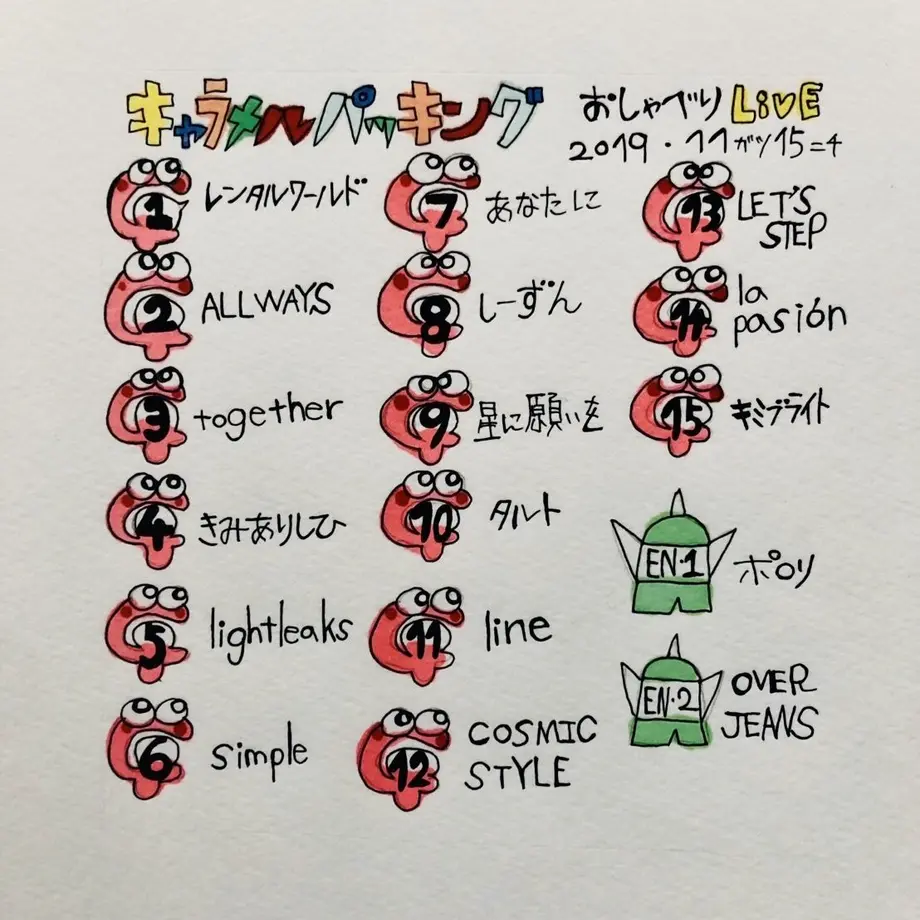 キャラメルパッキング
おしゃべりLiVE
2019・11ガツ15ニチ
1 レンタルワールド
2 ALLWAYS
3 together
4 きみありしひ
5 lightleaks
6 simple
7 あなたに
8 しーずん
9 星に願いを
10 タルト
11 line
12 COSMIC
STYLE
13 LET'S
STEP
14 la
pasión
15 キミブライト
EN・1 ポロリ
EN・2 OVER
JEANS